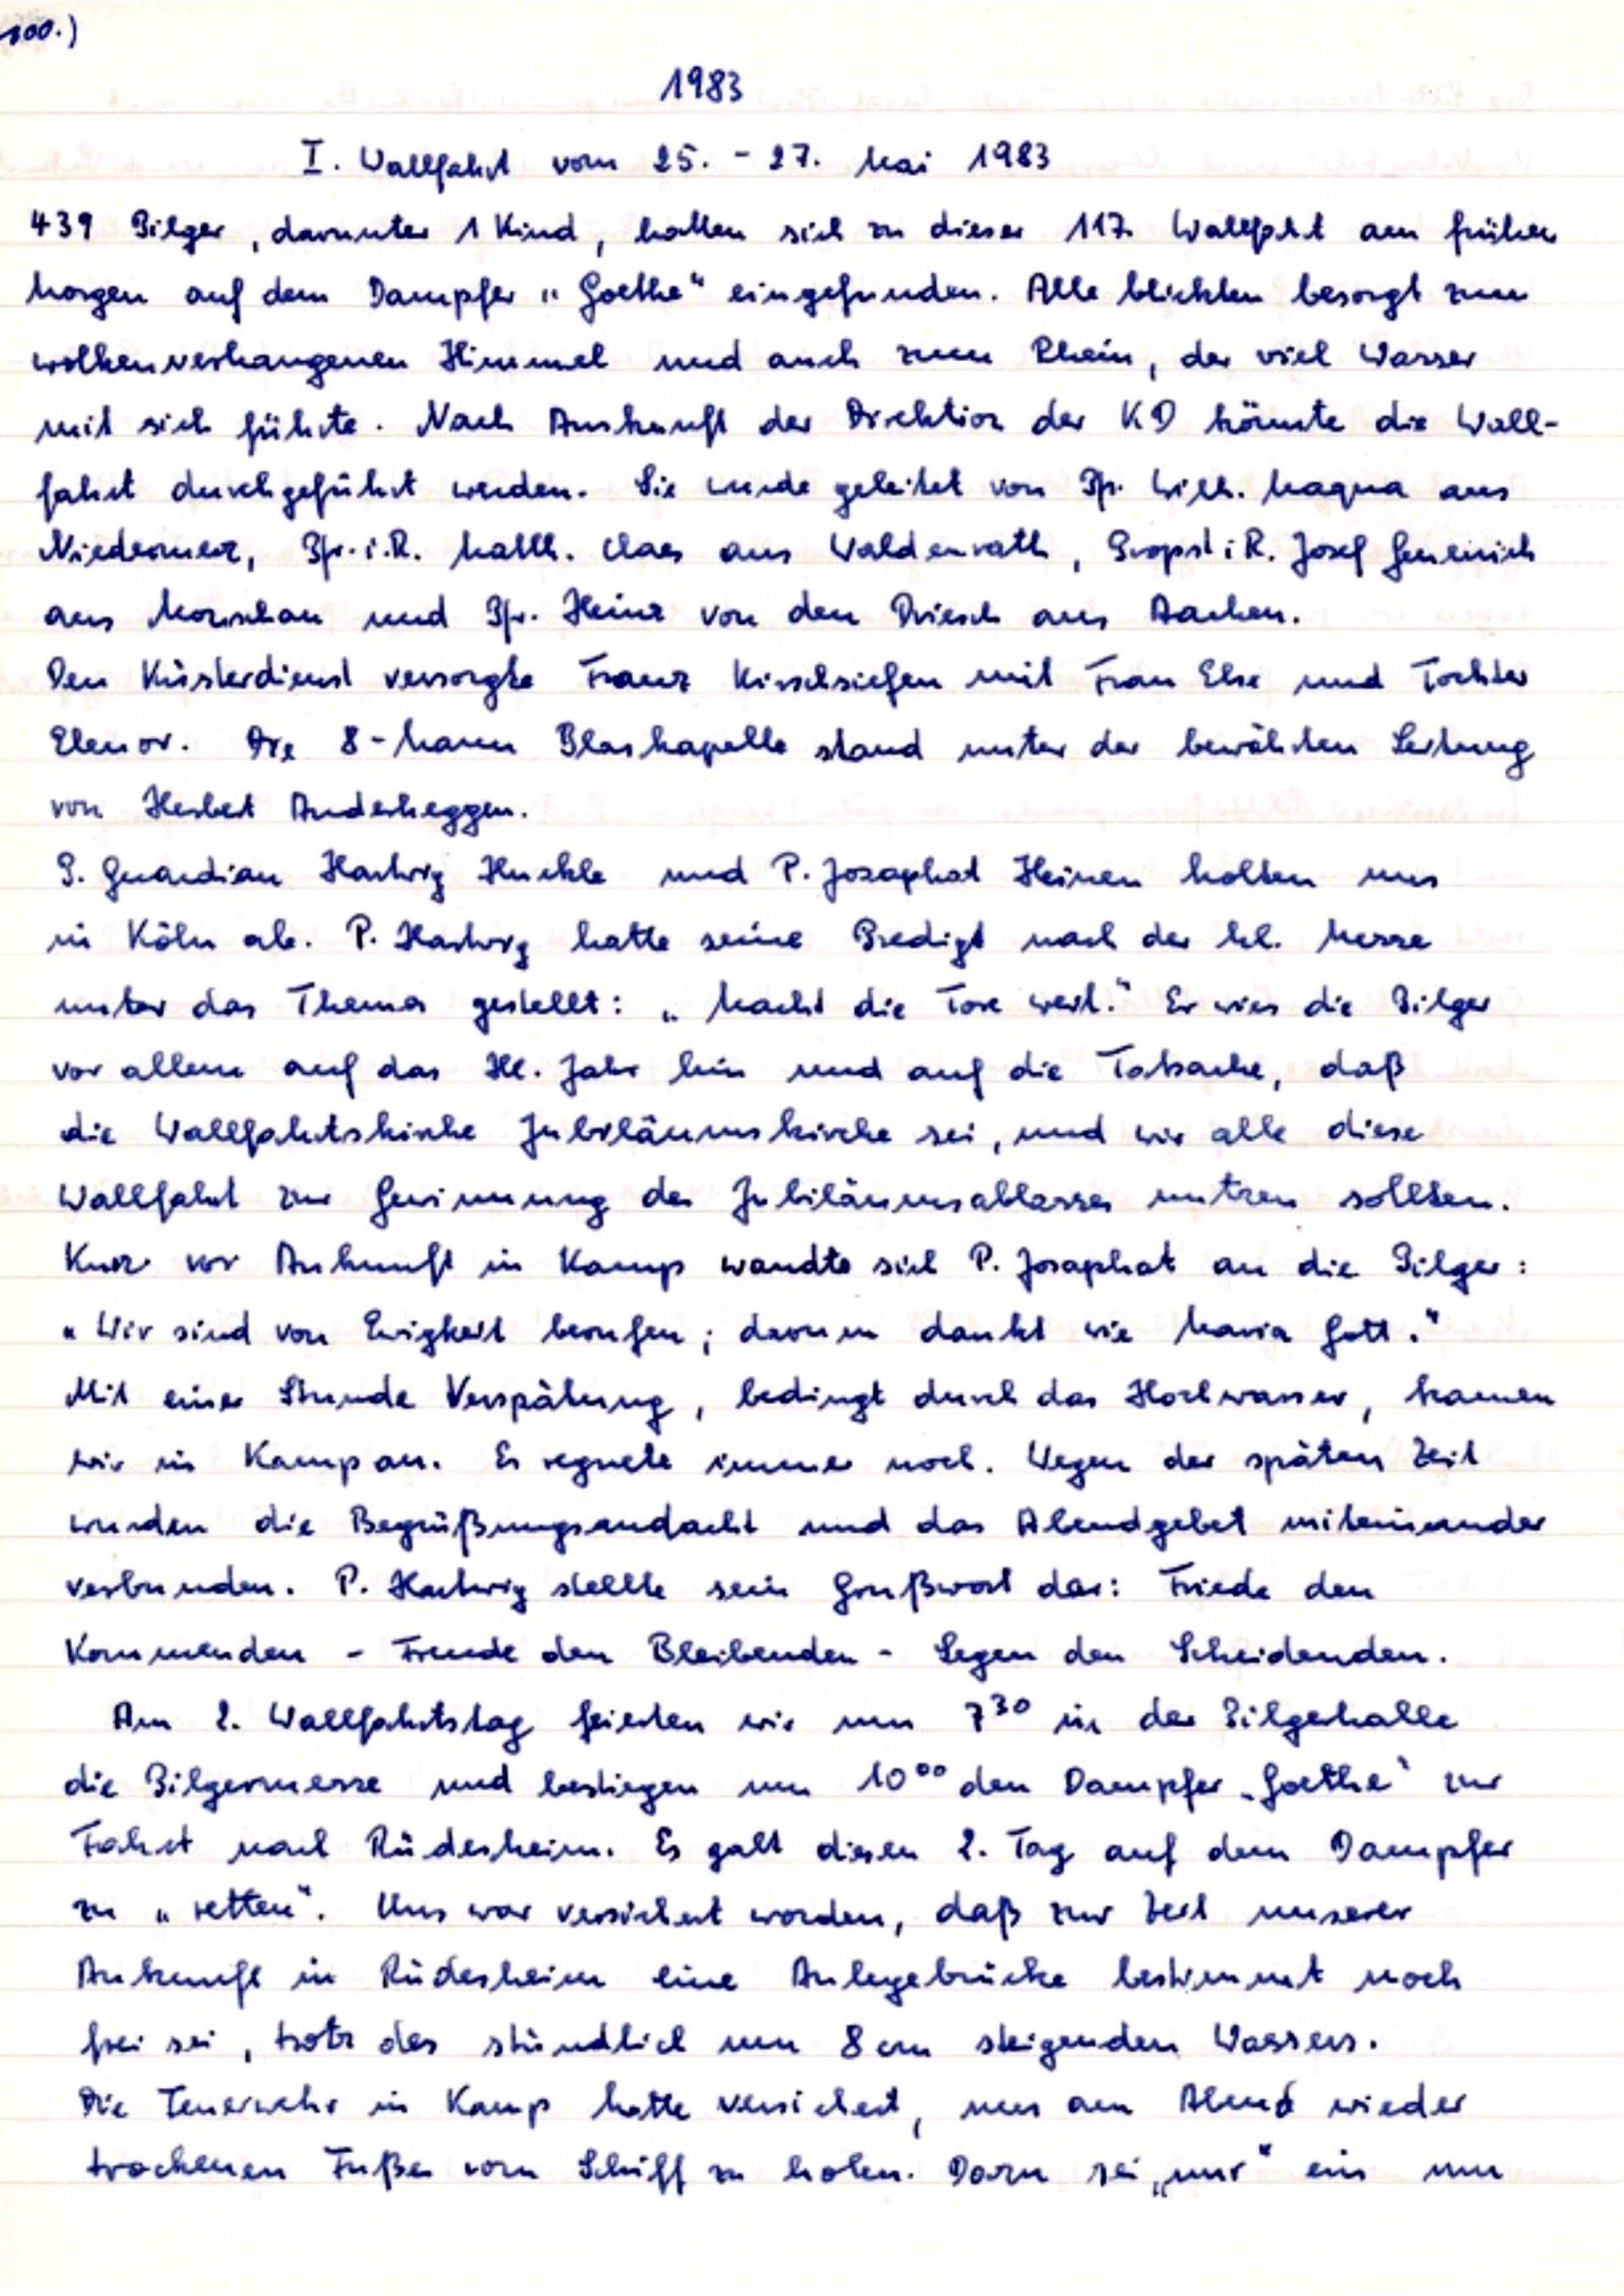 100.)
1983
I. Wallfahrt vom 25. - 27. Mai 1983
439 Pilger, darunter 1 Kind, hatten sich zu dieser 117. Wallfahrt am frühen
Morgen auf dem Dampfer „Goethe“ eingefunden. Alle blickten besorgt zum
wolkenverhangenen Himmel und auch zum Rhein, der viel Wasser
mit sich führte. Nach Auskunft der Direktion der KD könnte die Wall-
fahrt durchgeführt werden. Sie wurde geleitet von Pfr. Wilh. Maqua aus
Niedermerz, Pfr. i. R. Matth. Claes aus Waldenrath, Propst i R. Josef
aus Monschau und Pfr. Heinz von den Driesch aus Aachen.
Den Küsterdienst versorgte Franz Kirschsiefen mit Frau Else und Tochter
Elenor. Die 8-Mann Blaskapelle stand unter der bewährten Leitung
von Herbert Anderheggen.
P. Guardian Hartwig Huckle und P. Josaphat Heinen holten uns
in Köln ab. P. Hartwig hatte seine Predigt nach der hl. Messe
unter das Thema gestellt: „Macht die Tore weit.“ Er wies die Pilger
vor allem auf das Hl. Jahr hin und auf die Tatsache, daß
die Wallfahrtskirche Jubiläumskirche sei, und wir alle diese
Wallfahrt zur Gewinnung des Jubiläumsablasses nutzen sollten.
Kurz vor Ankunft in Kamp wandte sich P. Josaphat an die Pilger:
„Wir sind von Ewigkeit berufen; darum dankt wie Maria Gott.“
Mit einer Stunde Verspätung, bedingt durch das Hochwasser, kamen
wir in Kamp an. Es regnete immer noch. Wegen der späten Zeit
wurden die Begrüßungsandacht und das Abendgebet miteinander
verbunden. P. Hartwig stellte sein Grußwort dar: Friede den
Kommenden - Freude den Bleibenden - Segen den Scheidenden.
Am 2. Wallfahrtstag feierten wir um 7³⁰ in der Pilgerhalle
die Pilgermesse und bestiegen um 10⁰⁰ den Dampfer „Goethe“ zur
Fahrt nach Rüdesheim. Es galt diesen 2. Tag auf dem Dampfer
zu „retten“. Uns war versichert worden, daß zur Zeit unserer
Ankunft in Rüdesheim eine Anlegebrücke bestimmt noch
frei sei, trotz des stündlich um 8 cm steigenden Wassers.
Die Feuerwehr in Kamp hatte versichert, uns am Abend wieder
trockenen Fußes vom Schiff zu holen. Dazu sei „nur“ ein um